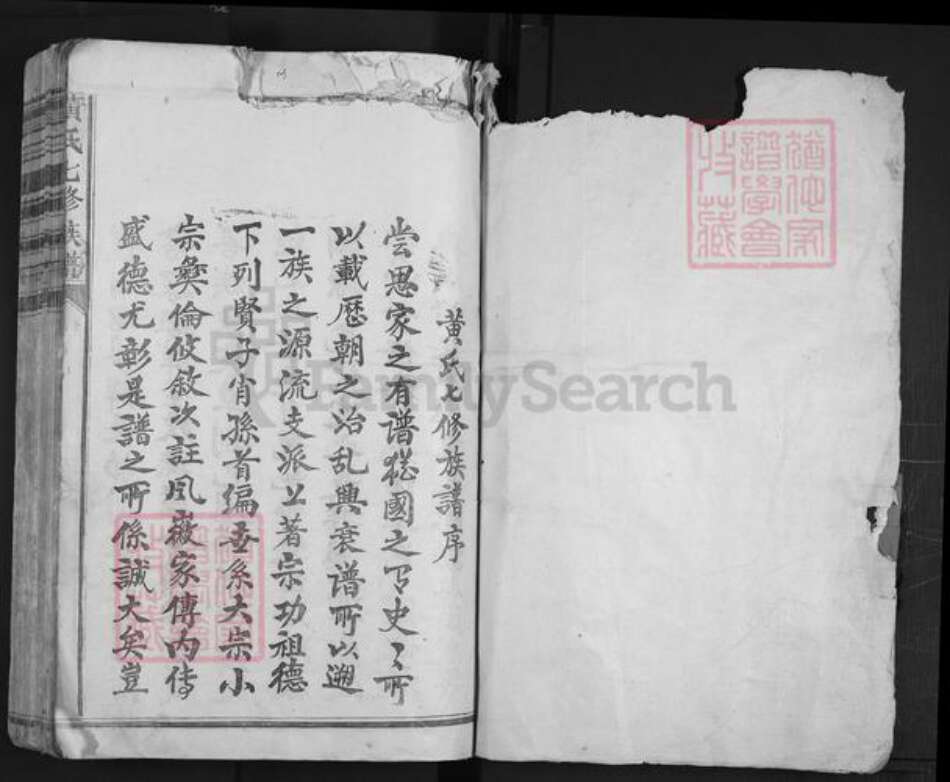 猶他家
譜學會
收藏
黃氏七修族譜序
尝思家之有谱猶國之有史〻所
以載歷朝之治乱興衰谱所以遡
一族之源流支派上著宗功祖德
下列賢子肖孫首编世系大宗小
宗彜倫攸敘次註風徽家傳內传
盛德尤彰是譜之所係誠大矣豈
黃氏七修族譜
FamilySearch